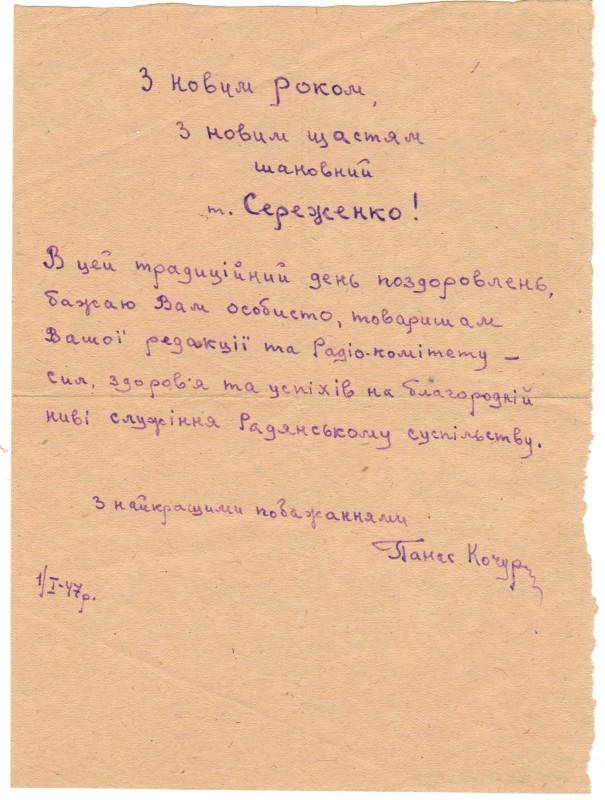 З новим роком,
З новим щастям
шановний
т. Сереженко!
В цей традиційний день поздоровлень,
бажаю Вам особисто, товаришам
Вашої редакції та Радіо-комітету –
сил, здоров'я та успіхів на благородній
ниві служіння Радянському суспільству.
З найкращими поважаннями
Панас Кочур
1/I-47р.